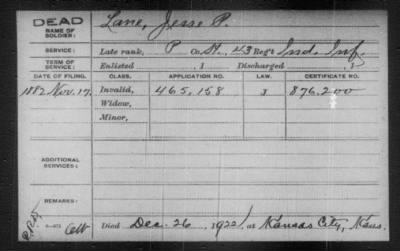 DEAD
NAME OF SOLDIER:
Lane, Jesse P.
SERVICE:
Late rank, P Co. H, 43 Reg't Ind. Inf.
TERM OF SERVICE:
Enlisted , 1 Discharged , 1
DATE OF FILING. CLASS. APPLICATION NO. LAW. CERTIFICATE NO.
1882 Nov. 17. Invalid, 465,158 J 876,200
Widow,
Minor,
ADDITIONAL SERVICES:
REMARKS:
Died Dec. 26, 1922, at Kansas City, Kans.